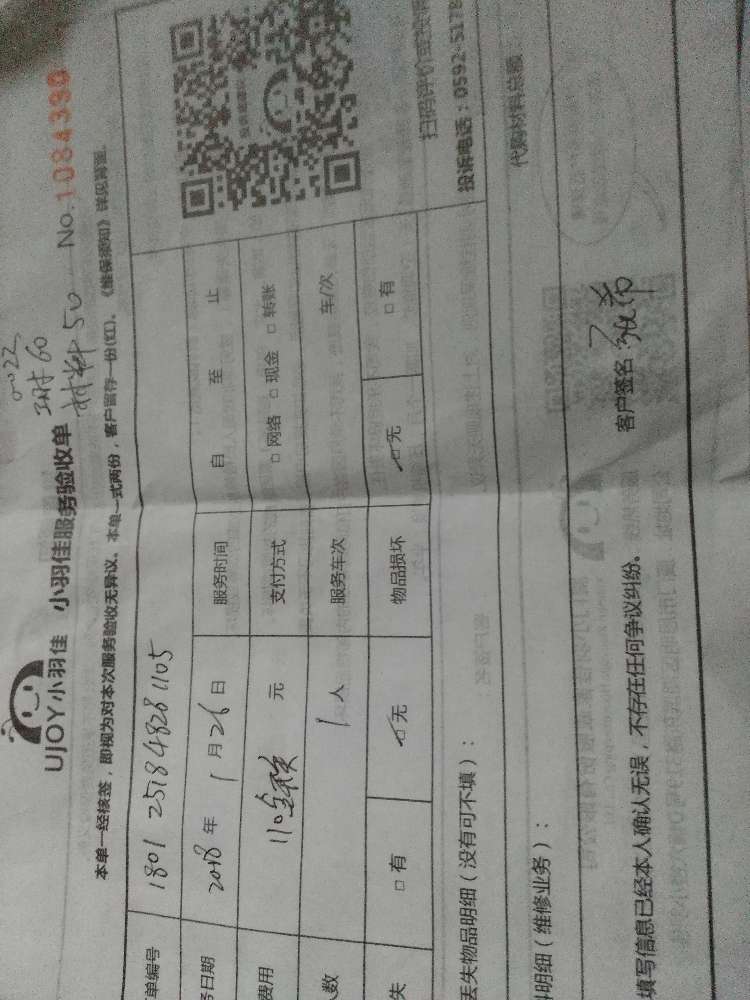 0022
工时60
材料50
UJOY小羽佳 小羽佳服务验收单 No.1084390
本单一经核签，即视为对本次服务验收无异议。本单一式两份，客户留存一份(红)。《维保须知》详见背面。
单编号 1801 2518 4828 1105
务日期 2018 年 1 月 26 日 服务时间 自 至 止
费用 110 元 支付方式 □网络 □现金 □转账
人数 1 人 服务车次 车/次
失 □有 □无 物品损坏 □无 □有
扫码评价
投诉电话：0592-5178
丢失物品明细（没有可不填）：
料明细（维修业务）： 代购材料总额
填写信息已经本人确认无误，不存在任何争议纠纷。 客户签名